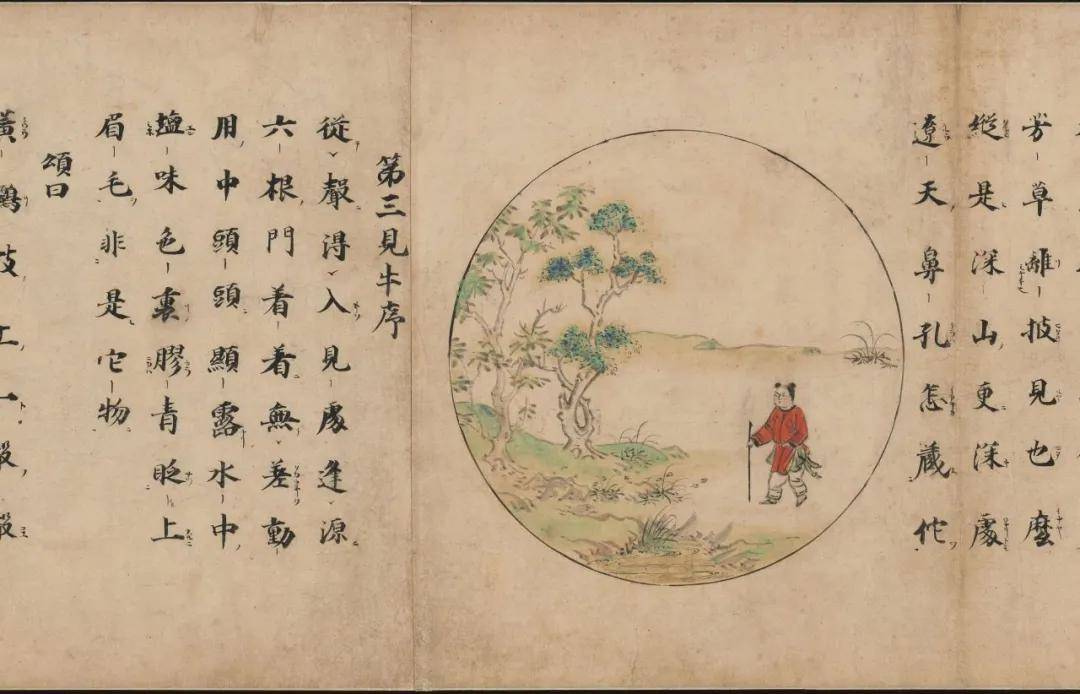 芳草離披見也麼
縱是深山更深處
遼天鼻孔怎藏佗
第三見牛序
從聲得入見處逢源
六根門着着無差動
用中頭頭顯露水中
塩味色裏膠青眨上
眉毛非是它物
頌曰